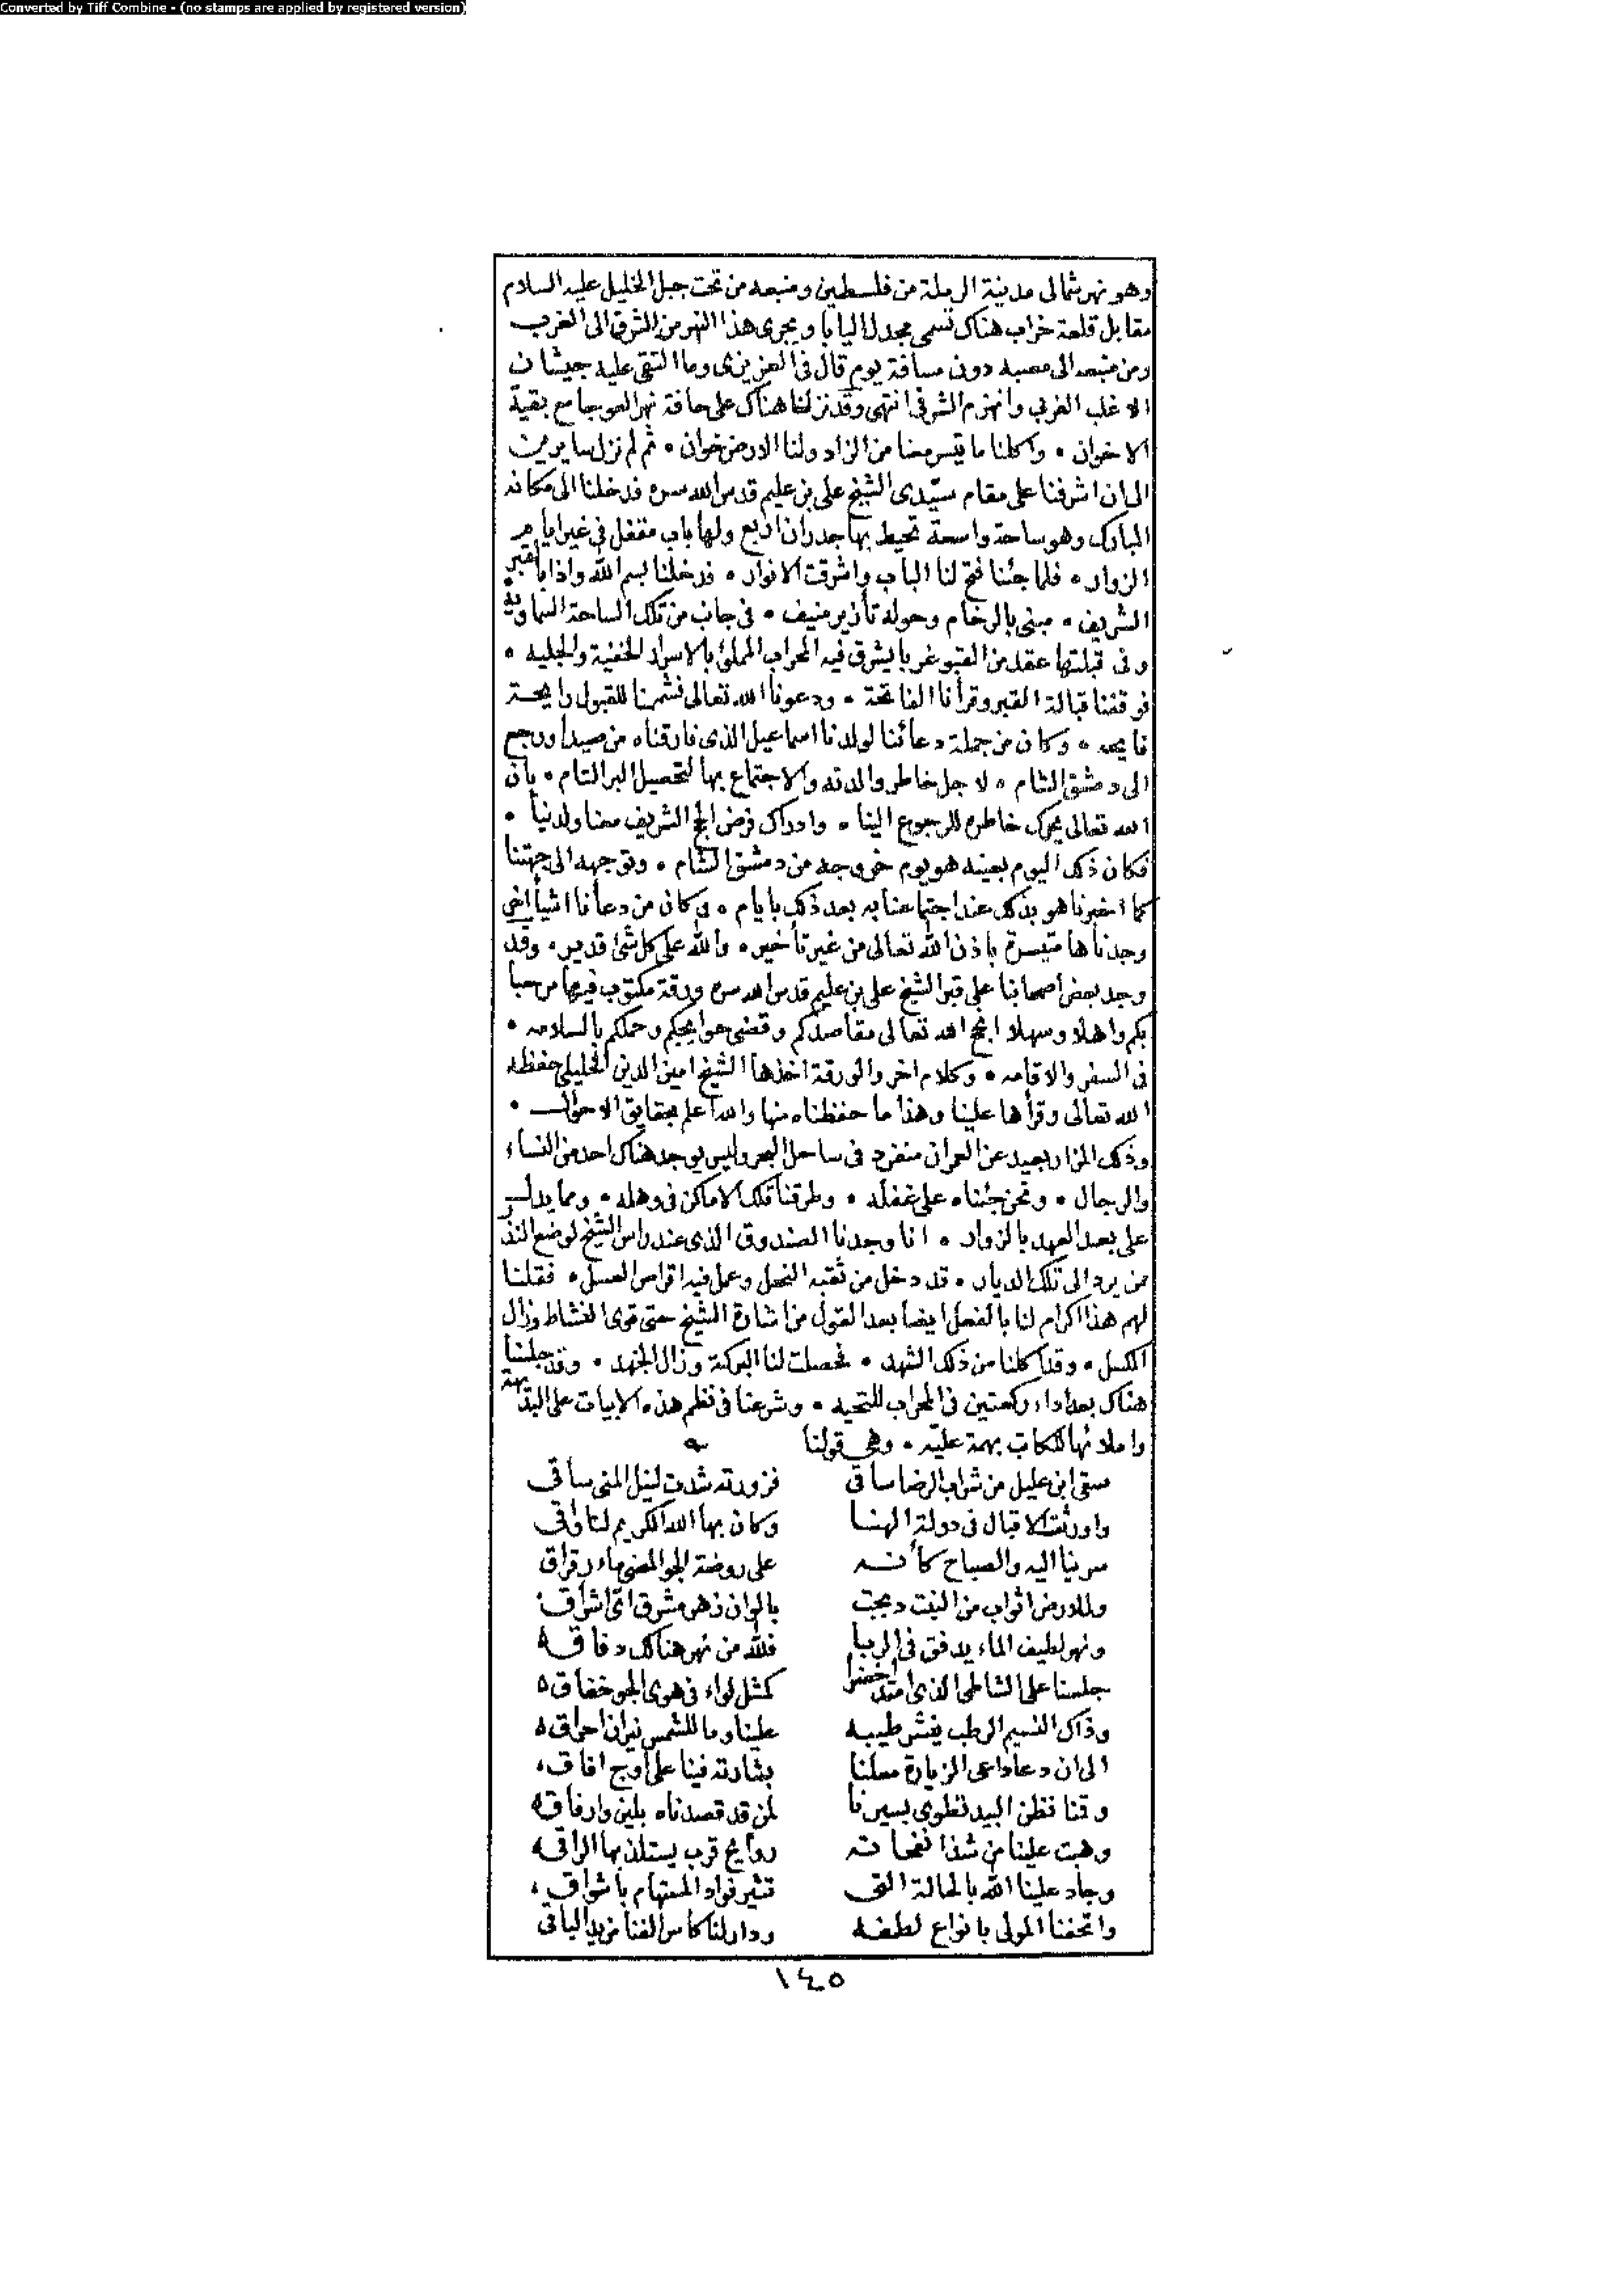 Converted by Tiff Combine - (no stamps are applied by registered version)
وهو نهر شمالى مدينة الرملة من فلسطين ومنبعه من تحت جبل الخليل عليه السلام
مقابل قلعة خراب هناك تسمى مجدل اليابا ويجرى هذا النهر من الشرق الى الغرب
ومن منبعه الى مصبه دون مسافة يوم قال فى العزيزى وما التقى عليه جيشان
الا غلب الغربى وانهزم الشرقى انتهى وقد نزلنا هناك على حافة نهر العوجا مع بقية
الاخوان • واكلنا ما تيسر معنا من الزاد ولنا الارض خوان • ثم لم نزل سايرين
الى ان اشرفنا على مقام سيّدى الشيخ على بن عليم قدس الله سره فدخلنا الى مكانه
المبارك وهو ساحة واسعة تحيط بها جدران اربع ولها باب مقفل فى غير ايام
الزوار • فلما جئنا فتح لنا الباب واشرقت الانوار • فدخلنا بسم الله واذا بالقبر
الشريف • مبنى بالرخام وحوله تأزير منيف • فى جانب من تلك الساحة السماوية •
وفى قبلتها عقد من القبو غربا يشرق فيه المحراب المملئ بالاسرار الخفية والجلية •
فوقفنا قبالة القبر وقرأنا الفاتحة • ودعونا الله تعالى فشممنا للقبول رايحة
فايحه • وكان من جملة دعائنا لولدنا اسماعيل الذى فارقناه من صيدا ورجع
الى دمشق الشام • لاجل خاطر والدته والاجتماع بها لتحصيل البر التام • بان
الله تعالى يحرك خاطره للرجوع الينا • وادراك فرض الحج الشريف معنا ولدنيا •
فكان ذلك اليوم بعينه هو يوم خروجه من دمشق الشام • وتوجهه الى جهتنا
كما اخبرنا هو بذلك عند اجتماعنا به بعد ذلك بايام • وكان من دعانا اشيأ اخر
وجدناها متيسرة باذن الله تعالى من غير تأخير • والله على كل شئ قدير • وقد
وجد بعض اصحابنا على قبر الشيخ على بن عليم قدس الله سره ورقة مكتوب فيها مرحبا
بكم واهلا وسهلا انجح الله تعالى مقاصدكم وقضى حوايجكم وحملكم بالسلامه •
فى السفر والاقامه • وكلام اخر والورقة اخذها الشيخ امين الدين الخليلى حفظه
الله تعالى وقرأها علينا وهذا ما حفظناه منها والله اعلم بحقايق الاحوال •
وذلك المزار بعيد عن العمران منفرد فى ساحل البحر وليس يوجد هناك احد من النساء
والرجال • ونحن جئناه على غفله • وطرقنا تلك الاماكن فى وهله • ومما يدل
على بعد العهد بالزوار • انا وجدنا الصندوق الذى عند راس الشيخ لوضع النذر
من يرد الى تلك الديار • قد دخل من ثقبه النحل وعمل فيه اقراص العسل • فقلنا
لهم هذا اكرام لنا بالفعل ايضا بعد القول من اشارة الشيخ حتى قوى النشاط وزال
الكسل • وقد اكلنا من ذلك الشهد • فحصلت لنا البركة وزال الجهد • وقد جلسنا
هناك بعد اداء ركعتين فى المحراب للتحيه • وشرعنا فى نظم هذه الابيات على البديهة
واملائها للكاتب بهمة عليّه • وهى قولنا
سقى ابن عليل من شراب الرضا ساقى فزورته شدت لنيل المنى ساقى
واورثت الاقبال فى دولة الهنا وكان بها الله الكريم لنا واقى
سرينا اليه والصباح كأنه على روضة الجو المضى ماء رقراق
وللارض اثواب من النبت دبجت بالوان زهر مشرق اى اشراق
ونهر لطيف الماء يدفق فى الربا فلله من نهر هنالك دفاق
جلسنا على الشاطى الذى امتد اخضرا كمثل لواء فى هوى الجو خفاق
وذاك النسيم الرطب ينشر طيبه علينا وما للشمس نيران احراق
الى ان دعا داعى الزيارة معلنا بشارته فينا على اوج افاق
وقمنا نظن البيد تطوى بسيرنا لمن قد قصدناه بلين وارفاق
وهبت علينا من شذا نفحاته روايح قرب يستلذ بها الراقى
وجاد علينا الله بالحالة التى تثير فواد المستهام باشواق
واتحفنا المولى بانواع لطفه ودار لنا كاس الفنا من يد الباقى
١٤٥